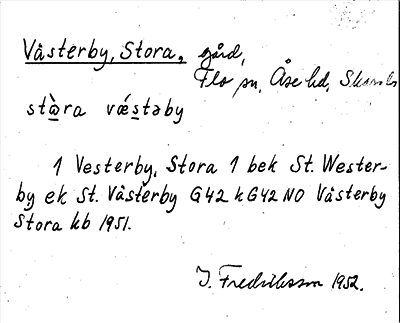 Västerby, Stora, gård,
Flo sn, Åse hd, Skarab
stàra vǽstəby
1 Vesterby, Stora 1 bek St. Wester-
by ek St. Västerby G42 k G42 NO Västerby
Stora kb 1951.
I. Fredriksson 1952.